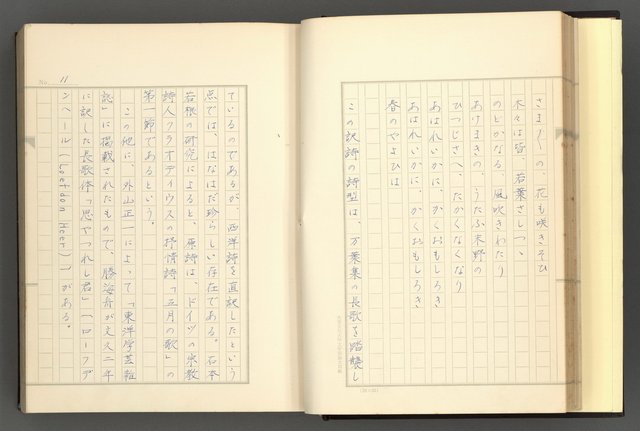 さま〲の、花も咲きそひ
木々は皆、若葉さしつゝ
のどかなる、風吹きわたり
あけまきの、うたふ木野の
ひつじさへ、たかくなくなり
あはれいかに、かくおもしろき
あはれいかに、かくおもしろき
春のやよひは
この訳詩の詩型は、万葉集の長歌を踏襲し
No. 11
ているのであるが、西洋詩を直訳したという
点では、はなはだ珍らしい存在である。石本
岩根の研究によると、原詩は、ドイツの宗教
詩人クラオディウスの抒情詩「五月の歌」の
第一節であるという。
この他に、外山正一によって「東洋学芸雑
誌」に掲載されたもので、勝海舟が文久二年
に訳した長歌体「思やつれし君」(ローフデ
ンヘール(Loefdon Heer))がある。